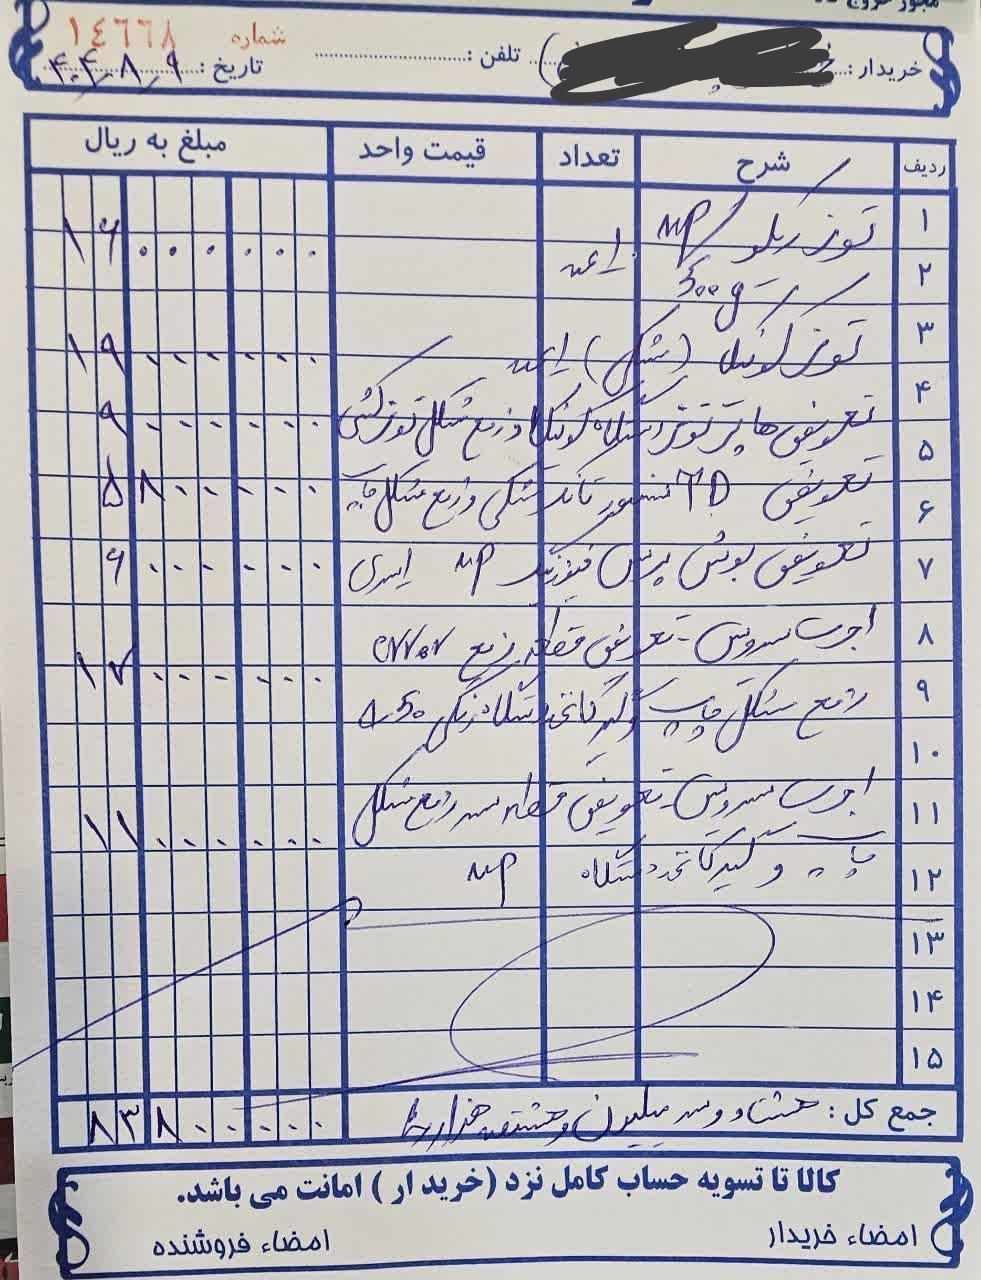 مجوز خروج
شماره ۱۴۶۶۸
خریدار : تلفن : تاریخ : ۴۰۴٫۸٫۹
ردیف شرح تعداد قیمت واحد مبلغ به ریال
۱ تونر ریکو MP ۱۶۰۰۰۰۰۰
۲ 500g ا عدد
۳ تونر کونیکا (مشکی) ا عدد ۱۹۰۰۰۰۰۰
۴ تعویض دستگاه کونیکا و رفع مشکل تونر کشی ۹۰۰۰۰۰۰
۵
۶ تعویض TD سنسور تانک مشکی و رفع مشکل چاپ ۵۸۰۰۰۰۰
۷ تعویض بوش پرس فیوزینگ MP ۶۰۰۰۰۰۰
۸ اجرت سرویس - تعویض قطعه رفع error ۱۷۰۰۰۰۰۰
۹ رفع مشکل چاپ و گیر کاغذ دستگاه رنگی
۱۰
۱۱ اجرت سرویس - تعویض قطعه رفع مشکل ۱۱۰۰۰۰۰۰
۱۲ چاپ و گیر کاغذ دستگاه MP
۱۳
۱۴
۱۵
جمع کل : هشتاد و سه میلیون و هشتصد هزار ریال ۸۳۸۰۰۰۰۰
کالا تا تسویه حساب کامل نزد (خرید ار ) امانت می باشد.
امضاء خریدار امضاء فروشنده